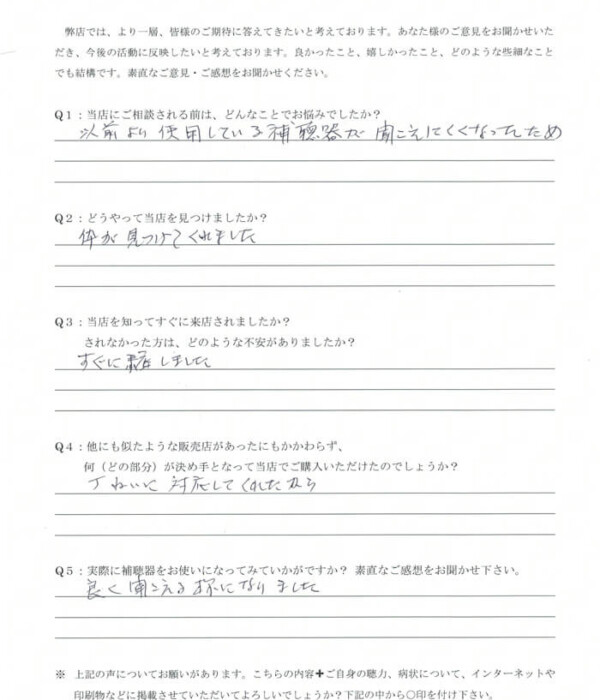 弊店では、より一層、皆様のご期待に答えてきたいと考えております。あなた様のご意見をお聞かせいた
だき、今後の活動に反映したいと考えております。良かったこと、嬉しかったこと、どのような些細なこと
でも結構です。素直なご意見・ご感想をお聞かせください。
Q1：当店にご相談される前は、どんなことでお悩みでしたか？
以前より使用している補聴器が聞こえにくくなったため
Q2：どうやって当店を見つけましたか？
が見つけてくれました
Q3：当店を知ってすぐに来店されましたか？
されなかった方は、どのような不安がありましたか？
すぐに来店しました
Q4：他にも似たような販売店があったにもかかわらず、
何（どの部分）が決め手となって当店でご購入いただけたのでしょうか？
丁ねいに対応してくれたから
Q5：実際に補聴器をお使いになってみていかがですか？ 素直なご感想をお聞かせ下さい。
良く聞こえる様になりました
※ 上記の声についてお願いがあります。こちらの内容✚ご自身の聴力、病状について、インターネットや
印刷物などに掲載させていただいてよろしいでしょうか？下記の中から○印を付け下さい。